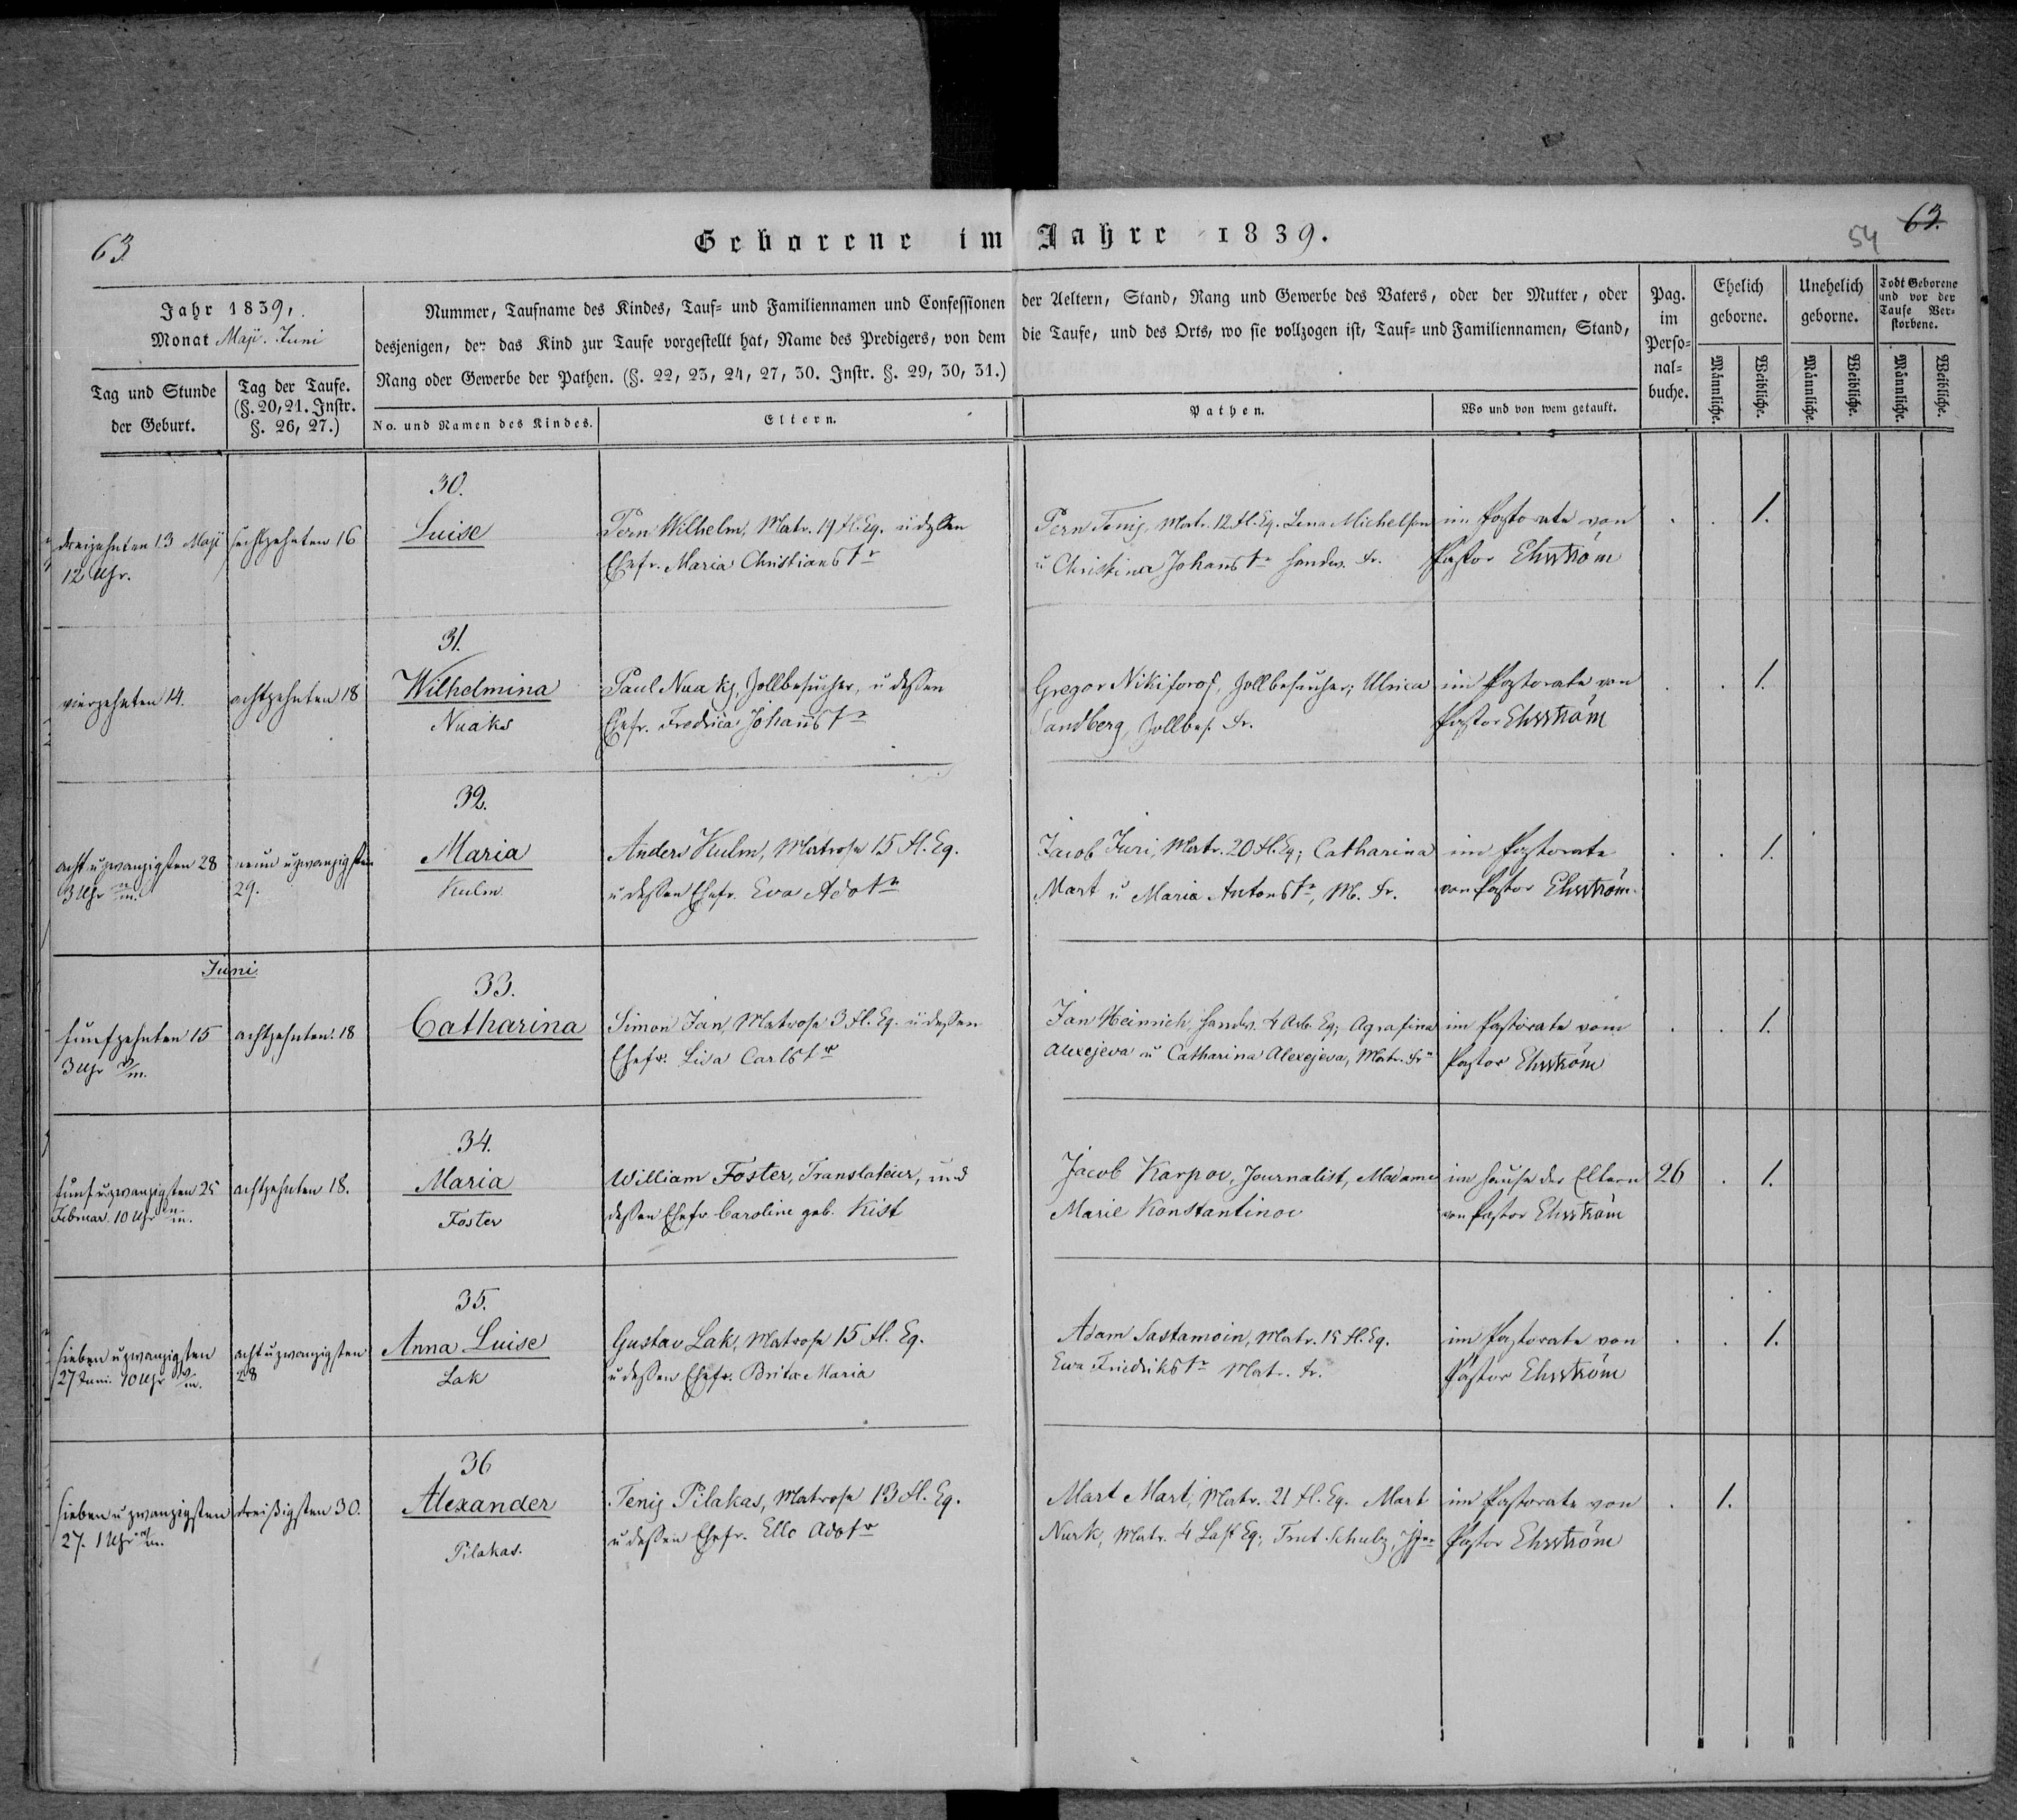 63.
Geborene im Jahre 1839.
54
63.
Jahr 1839,
Monat Maji. Juni
Tag und Stunde
der Geburt.
Tag der Taufe.
(§. 20, 21. Instr.
§. 26, 27.)
Nummer, Taufname des Kindes, Tauf- und Familiennamen und Confessionen der Aeltern, Stand, Rang und Gewerbe des Vaters, oder der Mutter, oder
desjenigen, der das Kind zur Taufe vorgestellt hat, Name des Predigers, von dem die Taufe, und des Orts, wo sie vollzogen ist, Tauf- und Familiennamen, Stand,
Rang oder Gewerbe der Pathen. (§. 22, 23, 24, 27, 30. Instr. §. 29, 30, 31.)
No. und Namen des Kindes.
Eltern.
Pathen.
Wo und von wem getauft.
Pag.
im
Perso-
nal-
buche.
Ehelich
geborne.
Unehelich
geborne.
Todt Geborene
und vor der
Taufe Ver-
storbene.
Männliche.
Weibliche.
Männliche.
Weibliche.
Männliche.
Weibliche.
dreizehnten 13 Maji
12 Uhr.
sechszehnten 16
30.
Luise
Pern Wilhelm, Matr. 19 fl. Eq. u deßen
Ehefr. Maria Christianstr
Pern Tenis, Matr. 12 fl. Eq. Lena Michelson
u Christina Johanstr Handw. Fr.
im Pastorate von
Pastor Ehrström
. . 1.
vierzehnten 14.
achtzehnten 18
31.
Wilhelmina
Naaks
Paul Naaks, Zollbesucher, u deßen
Ehefr. Fredrica Johanstr
Gregor Nikiforof, Zollbesucher; Ulrica
Sandberg, Zollbes. Fr.
im Pastorate von
Pastor Ehrström
. . 1.
acht u zwanzigsten 28
3 Uhr
neun u zwanzigsten
29.
32.
Maria
Kulm
Anders Kulm, Matrose 15 fl. Eq.
u deßen Ehefr. Eva Adotr
Jacob Juri, Matr. 20 fl. Eq; Catharina
Mart u Maria Antonstr, M. Fr.
im Pastorate
von Pastor Ehrström.
. . 1.
Juni
fünfzehnten 15
3 Uhr
achtzehnten. 18
33.
Catharina
Simon Jan, Matrose 3 fl. Eq. u deßen
Ehefr. Lisa Carlstr
Jan Heinrich, Handw. 4 Arb. Eq; Agrafina
Alexejeva u Catharina Alexejeva, Matr. Frn
im Pastorate vom
Pastor Ehrström
. . 1.
fünf u zwanzigsten 25
Februar. 10 Uhr
achtzehnten 18.
34.
Maria
Foster
William Foster, Translateur, und
deßen Ehefr. Caroline geb. Kist
Jacob Karpov, Journalist, Madame
Marie Konstantinov
im Hause der Eltern
von Pastor Ehrström
26 . 1.
sieben u zwanzigsten
27 Juni. 10 Uhr
acht u zwanzigsten
28
35.
Anna Luise
Lak
Gustav Lak, Matrose 15 fl. Eq.
u deßen Ehefr. Brita Maria
Adam Sastamoin, Matr. 15 fl. Eq.
Eva Friedrikstr Matr. Fr.
im Pastorate von
Pastor Ehrström
. . 1.
sieben u zwanzigsten
27. 1 Uhr
dreißigsten 30.
36
Alexander
Pilakas.
Tenis Pilakas, Matrose 13 fl. Eq.
u deßen Ehefr. Ello Adotr
Mart Mart, Matr. 21 fl. Eq. Mart
Nurk, Matr. 4 Last Eq; Trut Schulz,
im Pastorate von
Pastor Ehrström
. 1.